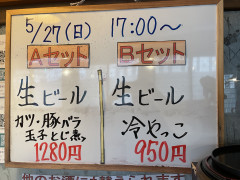 5/27(日) 17:00〜
Aセット
生ビール
カツ・豚バラ
玉子とじ煮
1280円
Bセット
生ビール
冷やっこ
950円